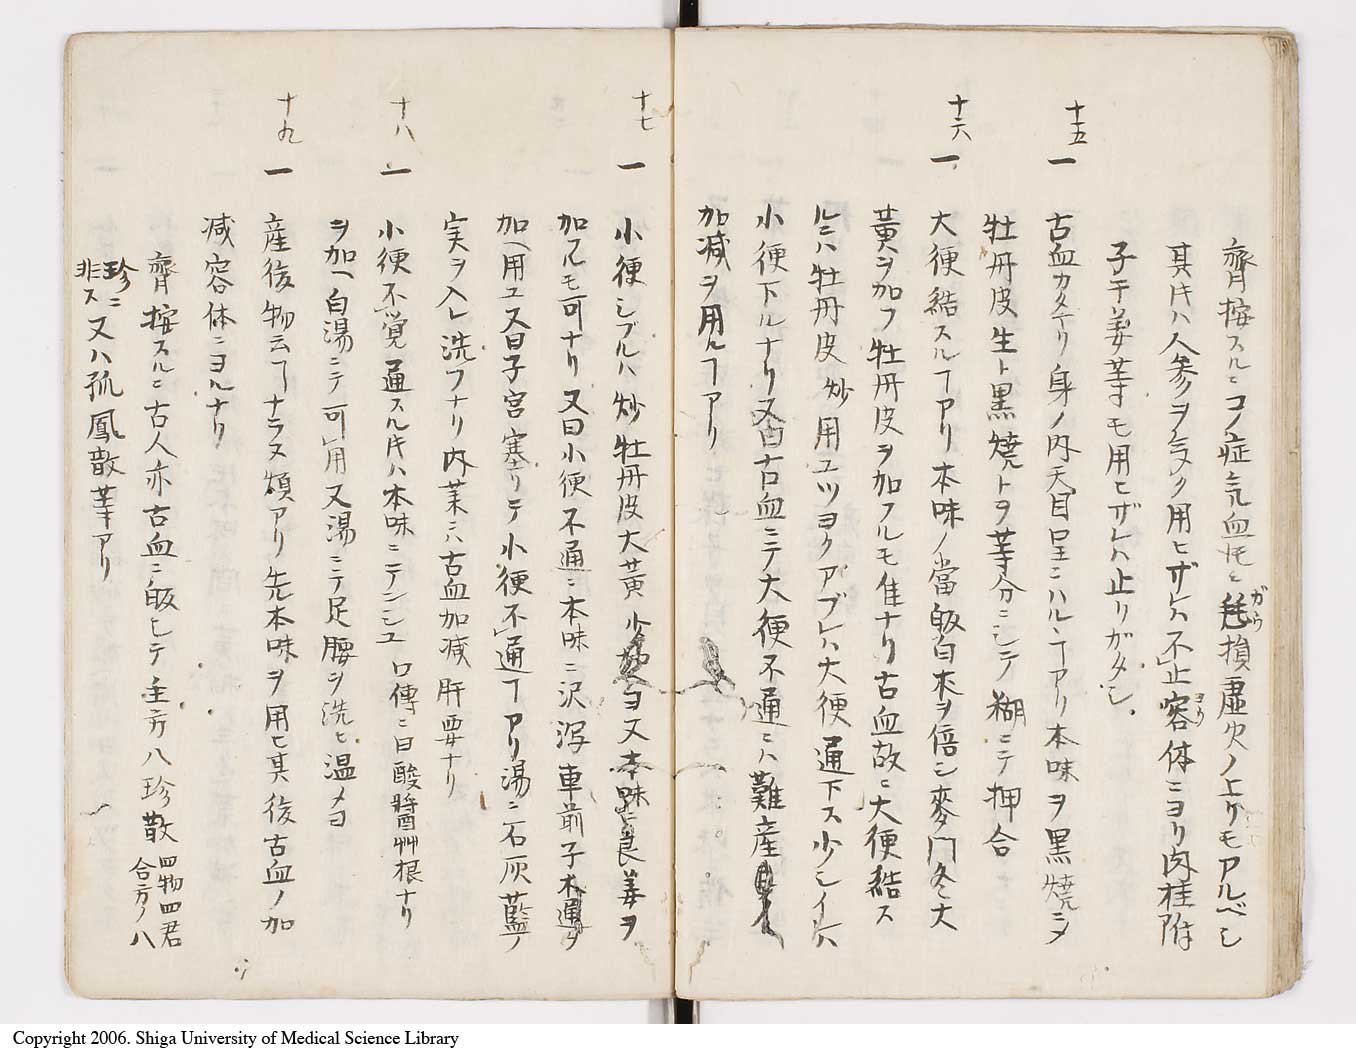 齊按スルニコノ症気血トモニ耗損虚欠ノ上ゲモアルベシ
其片ハ人参ヲ気ヌク用ヒザレハ不止容体ニヨリ肉桂附
子干姜等モ用ヒザレハ止リガタシ
十五
一 古血カタマリ身ノ内天目呈ニハルヿアリ本味ヲ黒焼ニシメ
牡丹皮生ト黒焼トヲ等分ニシテ糊ニテ押合
十六
一 大便結スルヿアリ本味ノ當皈白朮ヲ倍シ麥門冬大
黄ヲ加フ牡丹皮ヲ加フルモ佳ナリ古血故ニ大便結ス
ルニハ牡丹皮炒用ユツヨクアブレハ大便通下ス少シイレハ
小便下ルナリ又曰古血ニテ大便不通ニハ難産
加減ヲ用ルヿアリ
十七
一 小便シブルハ炒牡丹皮大黄少加ヨ又本味ニ良姜ヲ
加フルモ可ナリ又曰小便不通ニ本味ニ沢瀉車前子木通ヲ
加ヘ用ユ又曰子宮塞リテ小便不通ヿアリ湯ニ石灰藍ノ
実ヲ入レ洗フナリ内薬ニハ古血加減肝要ナリ
十八
一 小便不覚通スル片ハ本味ニテンシユ 口傳ニ曰酸醤艸根ナリ
ヲ加ヘ白湯ニテ可用又湯ニテ足腰ヲ洗ヒ温メヨ
十九
一 産後物云ヿナラヌ煩アリ先本味ヲ用ヒ其後古血ノ加
减容体ニヨルナリ
齊按スルニ古人亦古血ニ皈ヒテ主方八珍散 四物四君合方ノ八
珍ニ非ス 又ハ孤鳳散等アリ
Copyright 2006. Shiga University of Medical Science Library